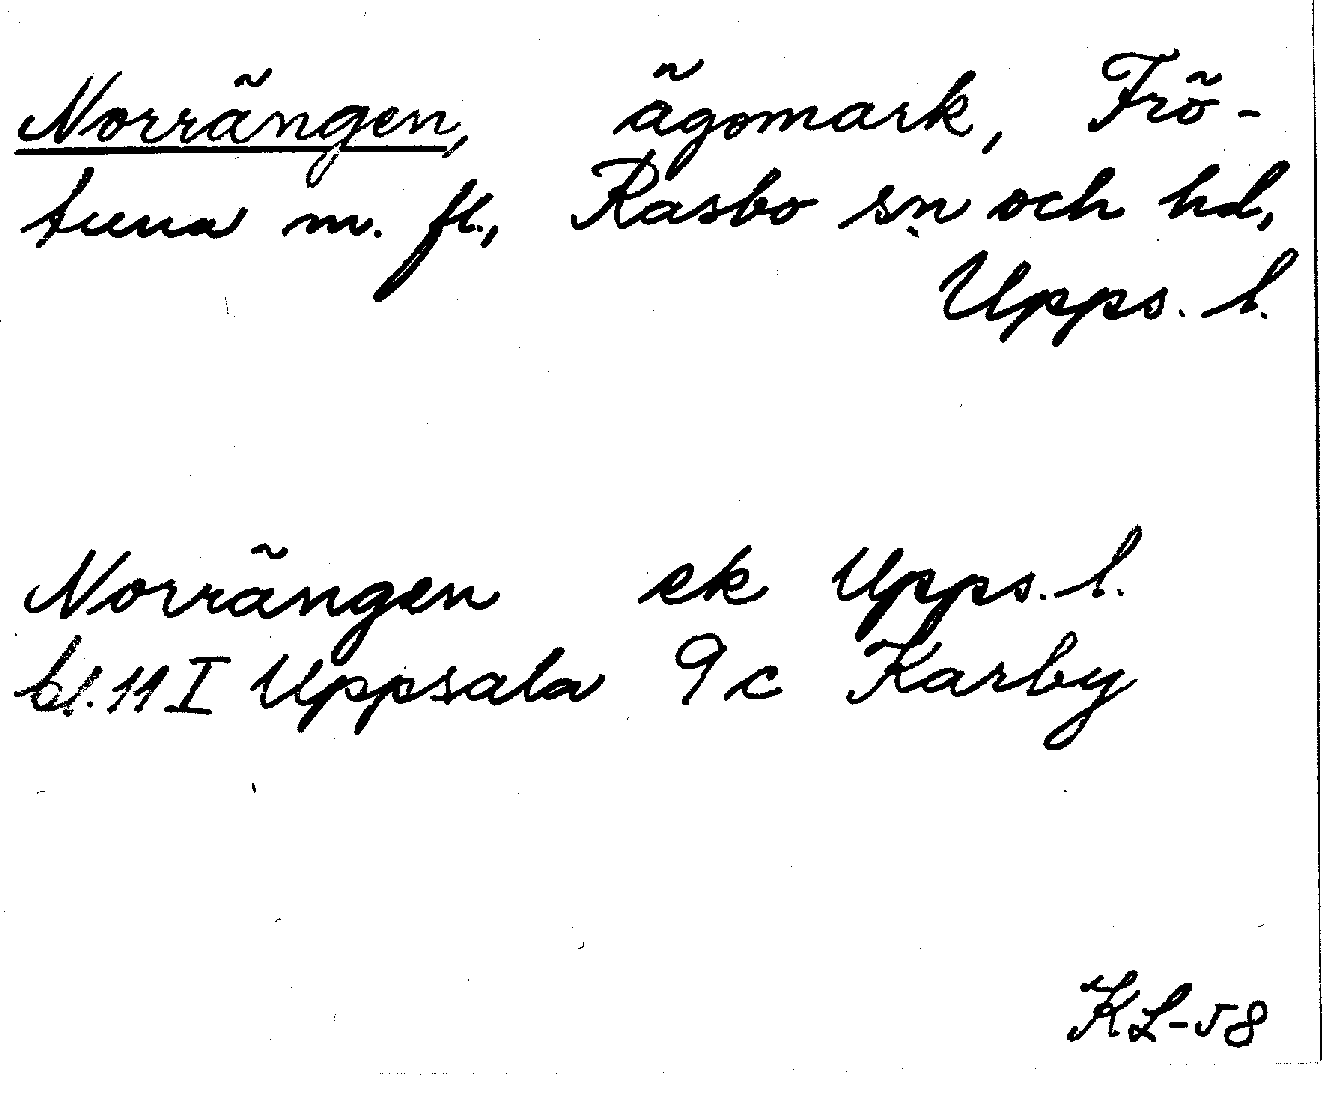 Norrängen, ägomark, Frö-
tuna m. fl., Rasbo sn och hd,
Upps. l.
Norrängen ek Upps. l.
bl. 11 I Uppsala 9 c Karby
KL-58